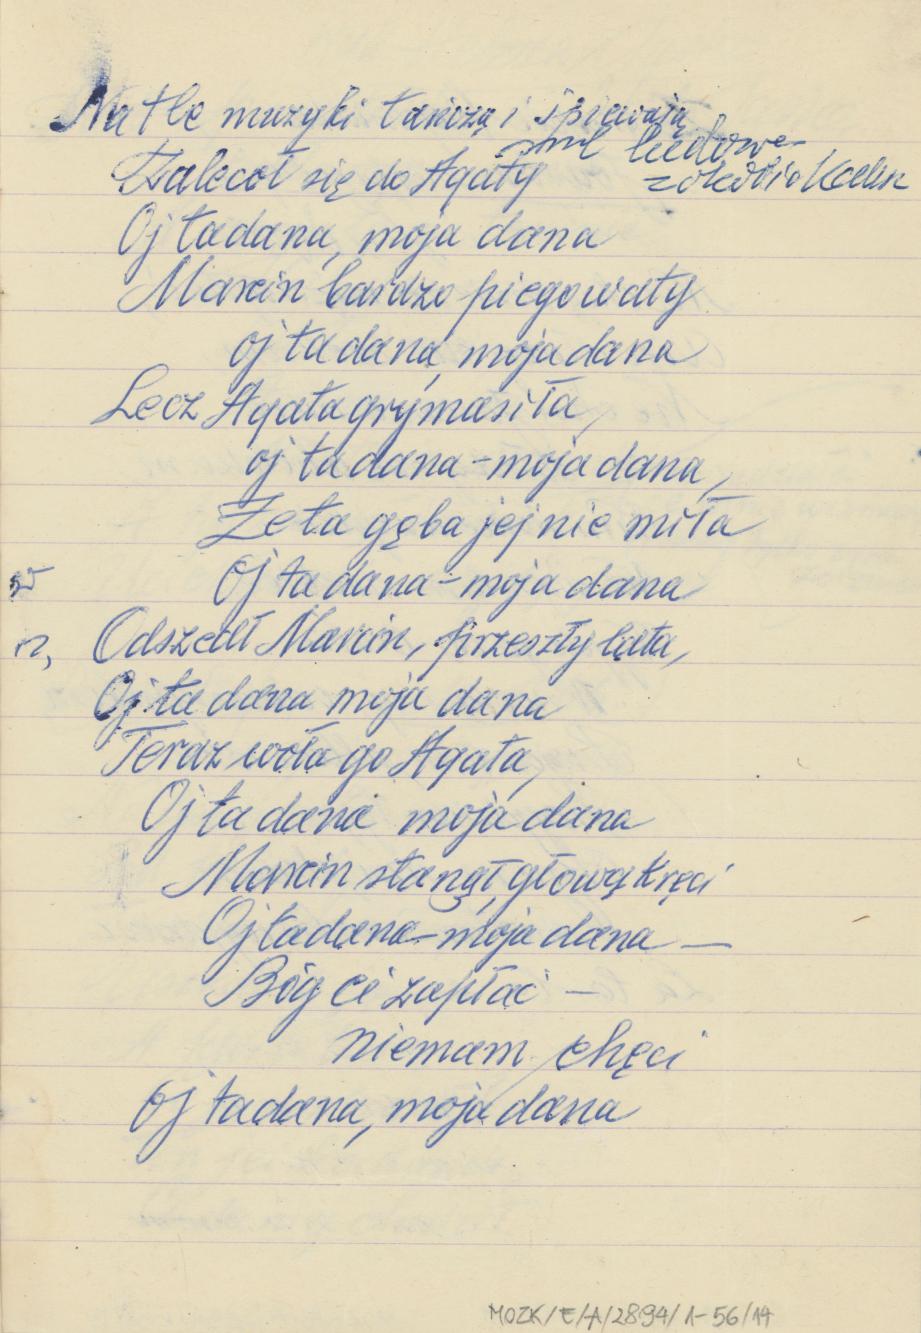 Na tle muzyki tańczą i śpiewają
ludowe
Zalecoł się do Agaty
z okolic Kalisz
Oj tadana, moja dana
Marcin bardzo piegowaty
oj ta dana, moja dana
Lecz Agata grymasiła,
oj ta dana - moja dana,
Że ta gęba jej nie miła
Oj ta dana - moja dana
Odszedł Marcin, przeszły lata,
Oj ta dana moja dana
Teraz woła go Agata,
Oj ta dana moja dana
Marcin stanął, głową kręci
Oj tadana - moja dana —
Bóg Ci zapłać —
niemam chęci
Oj tadana, moja dana
MOZK/E/A/2894/1-56/14